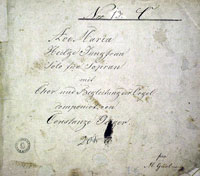 Nro 17 C
Ave Maria
Heilge Jungfrau
Solo für Sopran
mit
Chor und Begleitung der Orgel
componirt von
Constanze Geiger
20
für